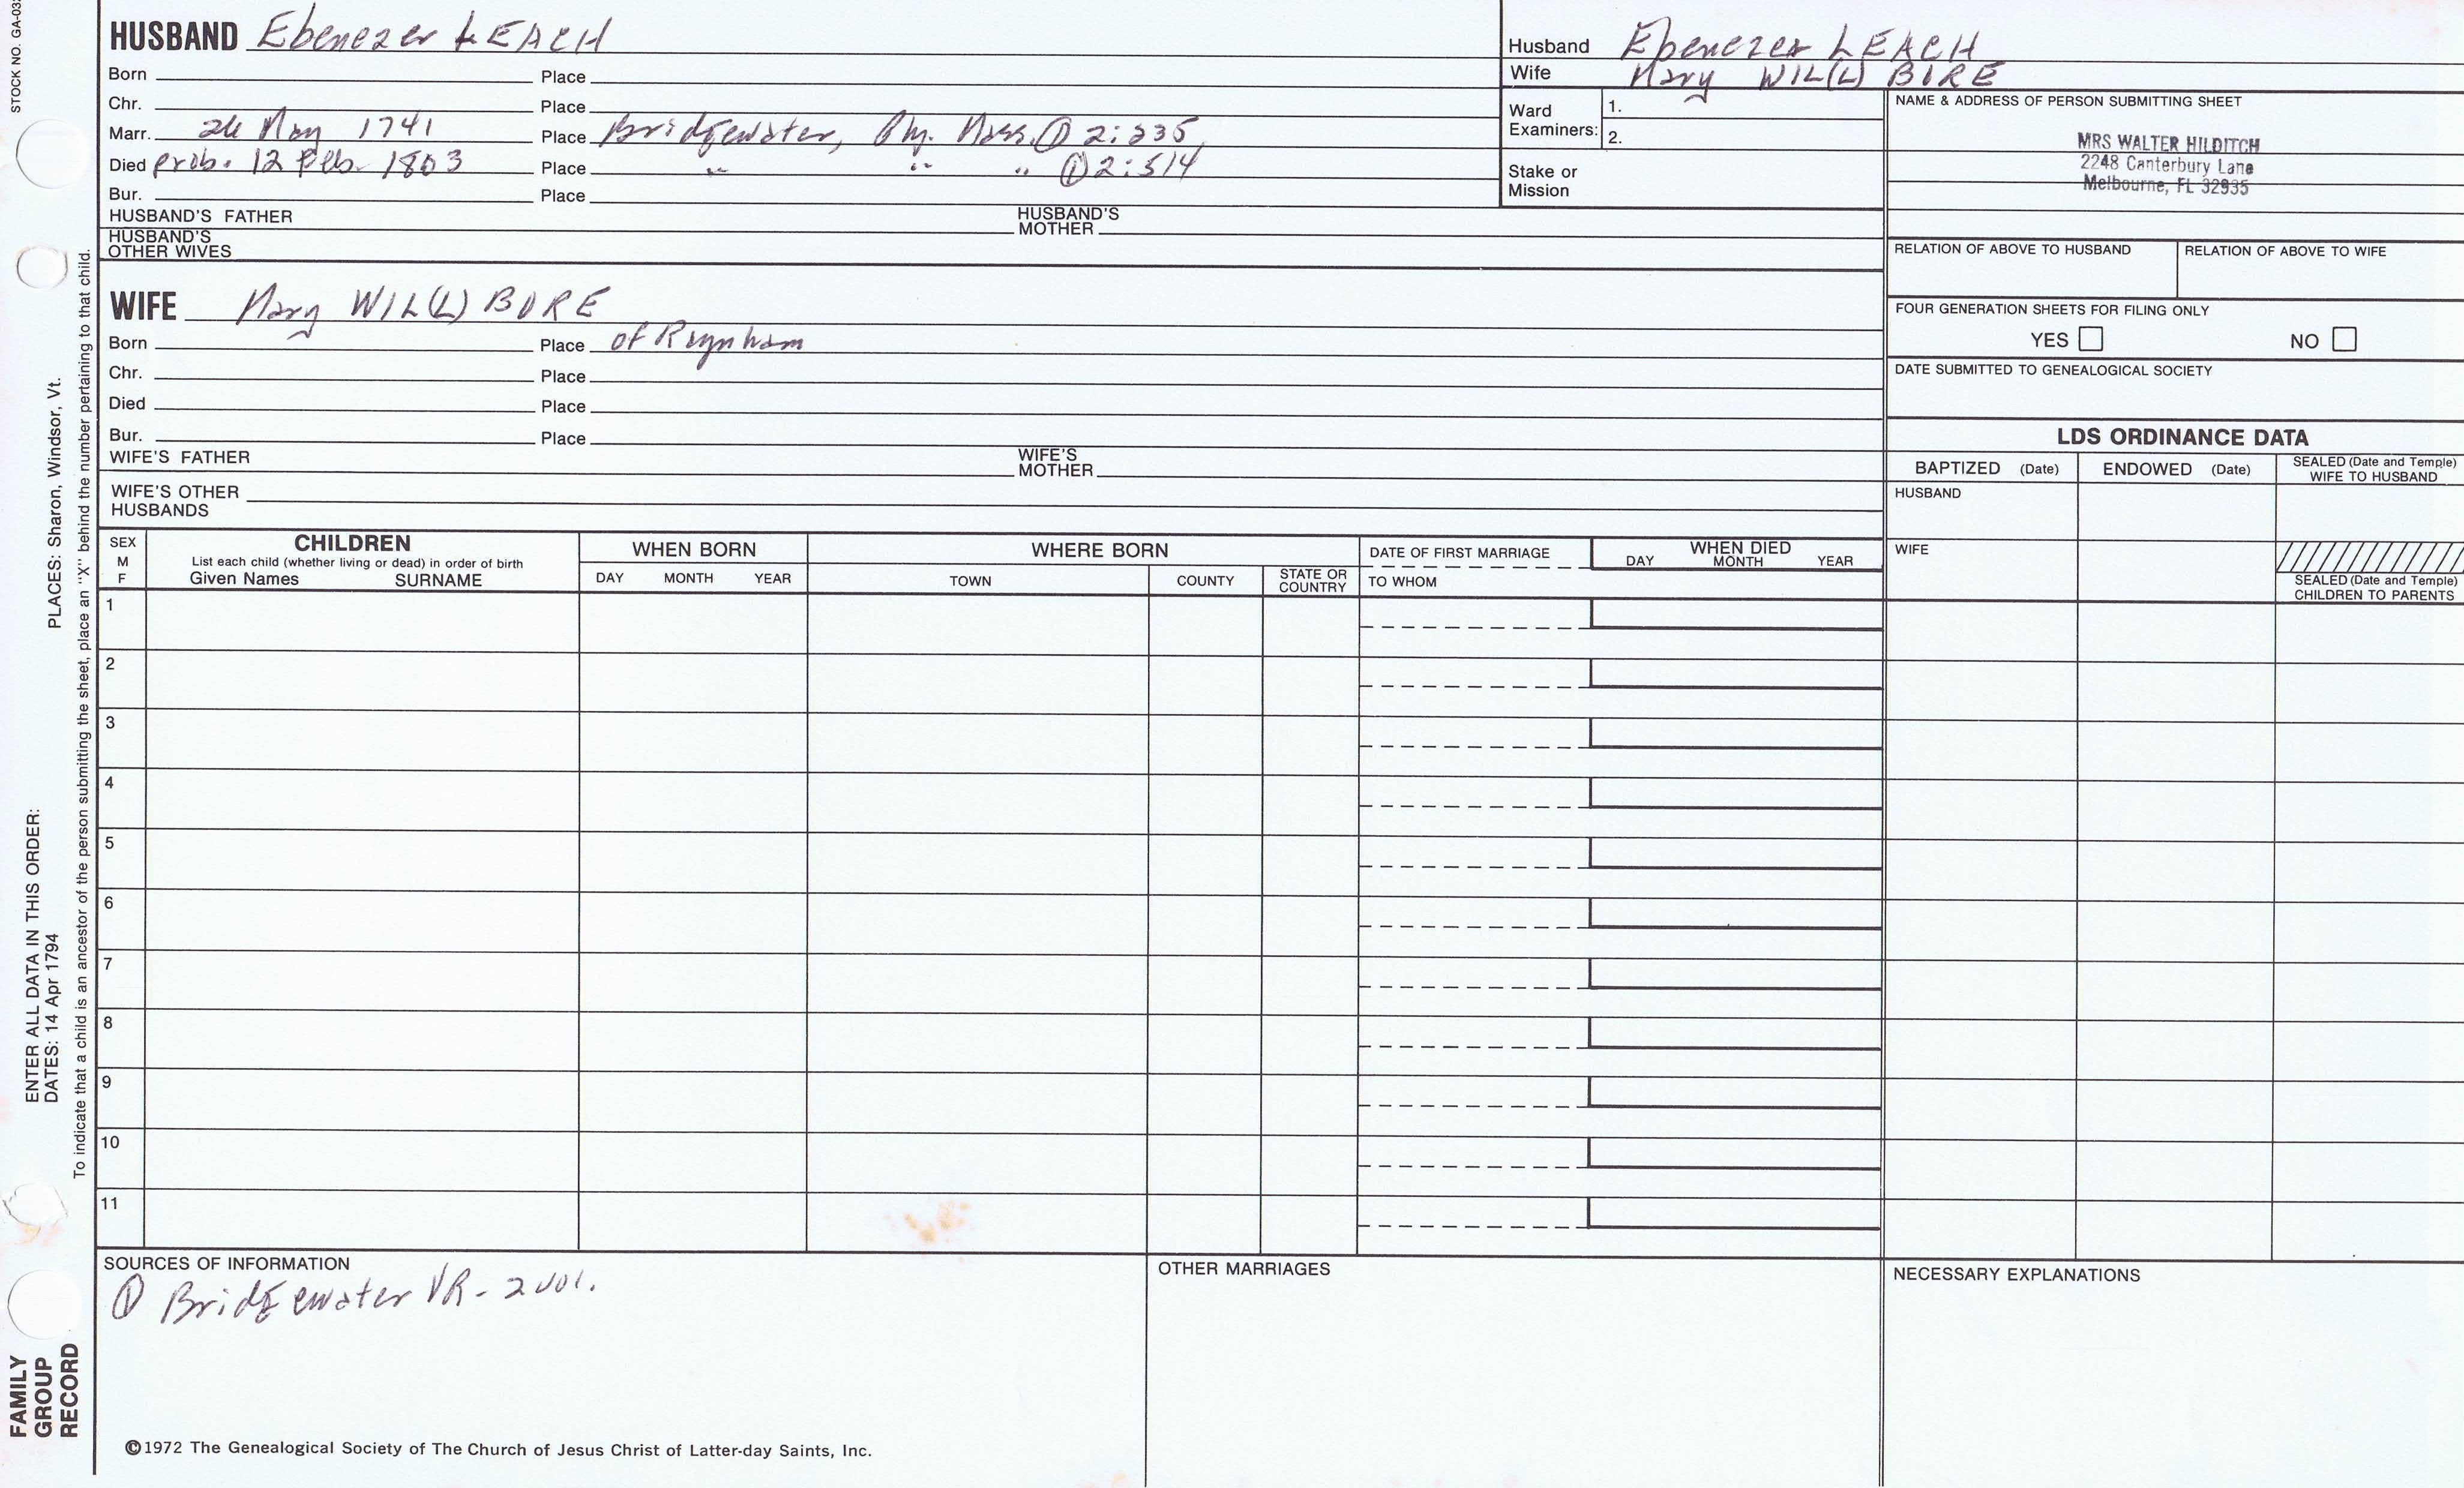 STOCK NO. GA-03
HUSBAND Ebenezer LEACH
Born Place
Chr. Place
Marr. 26 May 1741 Place Bridgewater, Ply. Mass. ① 2:235
Died prob. 12 Feb. 1803 Place " " " ① 2:514
Bur. Place
HUSBAND'S FATHER HUSBAND'S MOTHER
HUSBAND'S OTHER WIVES
Husband Ebenezer LEACH
Wife Mary WIL(L)BORE
Ward Examiners: 1.
2.
Stake or Mission
NAME & ADDRESS OF PERSON SUBMITTING SHEET
MRS WALTER HILDITCH
2248 Canterbury Lane
Melbourne, FL 32935
RELATION OF ABOVE TO HUSBAND RELATION OF ABOVE TO WIFE
FOUR GENERATION SHEETS FOR FILING ONLY
YES NO
DATE SUBMITTED TO GENEALOGICAL SOCIETY
WIFE Mary WIL(L)BORE
Born Place of Raynham
Chr. Place
Died Place
Bur. Place
WIFE'S FATHER WIFE'S MOTHER
WIFE'S OTHER HUSBANDS
LDS ORDINANCE DATA
BAPTIZED (Date) ENDOWED (Date) SEALED (Date and Temple) WIFE TO HUSBAND
HUSBAND
WIFE
SEALED (Date and Temple) CHILDREN TO PARENTS
SEX M F
CHILDREN
List each child (whether living or dead) in order of birth
Given Names SURNAME
WHEN BORN
DAY MONTH YEAR
WHERE BORN
TOWN COUNTY STATE OR COUNTRY
DATE OF FIRST MARRIAGE
TO WHOM
WHEN DIED
DAY MONTH YEAR
1
2
3
4
5
6
7
8
9
10
11
SOURCES OF INFORMATION
① Bridgewater VR - 2 vol.
OTHER MARRIAGES
NECESSARY EXPLANATIONS
©1972 The Genealogical Society of The Church of Jesus Christ of Latter-day Saints, Inc.
FAMILY
GROUP
RECORD
ENTER ALL DATA IN THIS ORDER:
DATES: 14 Apr 1794 PLACES: Sharon, Windsor, Vt.
To indicate that a child is an ancestor of the person submitting the sheet, place an "X" behind the number pertaining to that child.